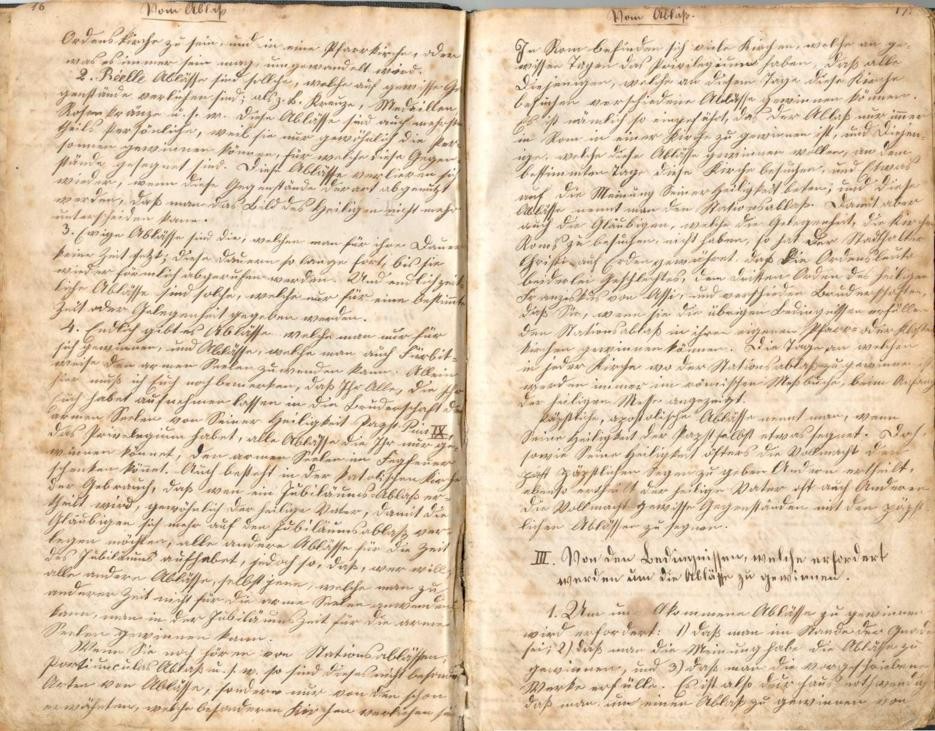 16
Vom Ablaß
Ordenskirche zu sein, und in eine Pfarrkirche, oder
was es immer sein mag, umgewandelt wird.
2. Reelle Ablässe sind solche, welche auf gewisse Ge-
genstände verliehen sind; als z. b. Kreuze, Medaillen
Rosenkränze u. s. w. Diese Ablässe sind auch meisten
theils Persönliche, weil sie nur gewöhnlich die Per-
sonen gewinnen können, für welche diese Gegen-
stände gesegnet sind. Diese Ablässe verlieren sich
wieder, wenn diese Gegenstände derart abgenützt
werden, daß man das Bild des Heiligen nicht mehr
unterscheiden kann.
3. Ewige Ablässe sind die, welchen man für ihre Dauer
keine Zeit setzt; diese dauern so lange fort, bis sie
wieder förmlich abgerufen werden. Und endlich zeit-
liche Ablässe sind solche, welche nur für eine bestimmte
Zeit oder Gelegenheit gegeben werden.
4. Endlich gibt es Ablässe welche man nur für
sich gewinnen, und Ablässe, welche man auch Fürbitt-
weise den armen Seelen zuwenden kann. Allein
hier muß ich Euch noch bemerken, daß Ihr Alle, die Ihr
Euch habet aufnehmen lassen in die Bruderschaft der
armen Seelen von Seiner Heiligkeit Papst Pius IX,
das Privilegium habet, alle Ablässe die Ihr nur ge-
winnen könnet, den armen Seelen im Fegfeuer
schenken könnet. Auch besteht in der katolischen Kirche
der Gebrauch, daß wen ein Jubiläums-Ablaß er-
theilt wird, gewöhnlich der heilige Vater, damit die
Gläubigen sich mehr auf den Jubiläumsablaß ver-
legen möchten, alle andere Ablässe für die Zeit
des Jubiläums aufhebet, jedoch so, daß, wer will
alle andere Ablässe, selbst jene, welche man zu
anderer Zeit nicht für die arme Seelen zuwenden
kann, man in der Jubiläums Zeit für die arme
Seelen gewinnen kann.
Wenn Sie noch hören von Stationsablässen,
Portiunculas Ablaß u. s. w. so sind dieses nicht besondere
Arten von Ablässe, sondern nur von den schon
erwähnten, welche besonderen Kirchen verliehen
17.
Vom Ablaß.
In Rom befinden sich viele Kirchen, welche an ge-
wissen Tagen das Privilegium haben, daß alle
Diejenigen, welche an diesem Tage diese Kirche
besuchen verschiedene Ablässe gewinnen können.
Es ist nämlich so eingeführt, daß der Ablaß nur immer
in Rom in einer Kirche zu gewinnen ist, und Diejen-
igen, welche diese Ablässe gewinnen wollen, an dem
bestimmten Tage diese Kirche besuchen, und Etwas
auf die Meinung Seiner Heiligkeit beten; und diese
Ablässe nennt man den Stationsablaß. Damit aber
auch die Gläubigen, welche die Gelegenheit, die Kirchen
Roms zu besuchen, nicht haben, so hat der Statthalter
Christi auf Erden gewähret, daß die Ordensleute
beiderlei Geschlechtes, dem dritten Orden des heiligen
Franziskus von Assisi, und verschieden Bruderschaften,
daß Sie, wenn sie die übrigen Bedingnissen erfüllen
den Stationsablaß in ihren eigenen Pfarr- oder Kloster
kirchen gewinnen können. Die Tage, an welchen
in jeder Kirche wo der Stationsablaß zu gewinnen ist
werden immer im römischen Meßbuche, beim Anfang
der heiligen Messe angezeigt.
Päpstliche, apostolische Ablässe nennt man, wenn
Seine Heiligkeit der Papst selbst etwas segnet. Doch
sowie Seine Heiligkeit öfters die Vollmacht den
Päpstlichen Segen zu geben Andern ertheilt,
ebenso ertheilt der heilige Vater oft auch Anderen
die Vollmacht gewisse Gegenstände mit den päpst-
lichen Ablässen zu segnen.
III. Von den Bedingnissen, welche erfordert
werden um die Ablässe zu gewinnen.
1. Um Ablässe zu gewinnen
wird erfordert: 1) daß man im Stande der Gnade
sei; 2) daß man die Meinung habe die Abläße zu
gewinnen, und 3) daß man die vorgeschriebene
Werke erfülle. Es ist also durchaus nothwendig
daß man, um einen Ablaß zu gewinnen von